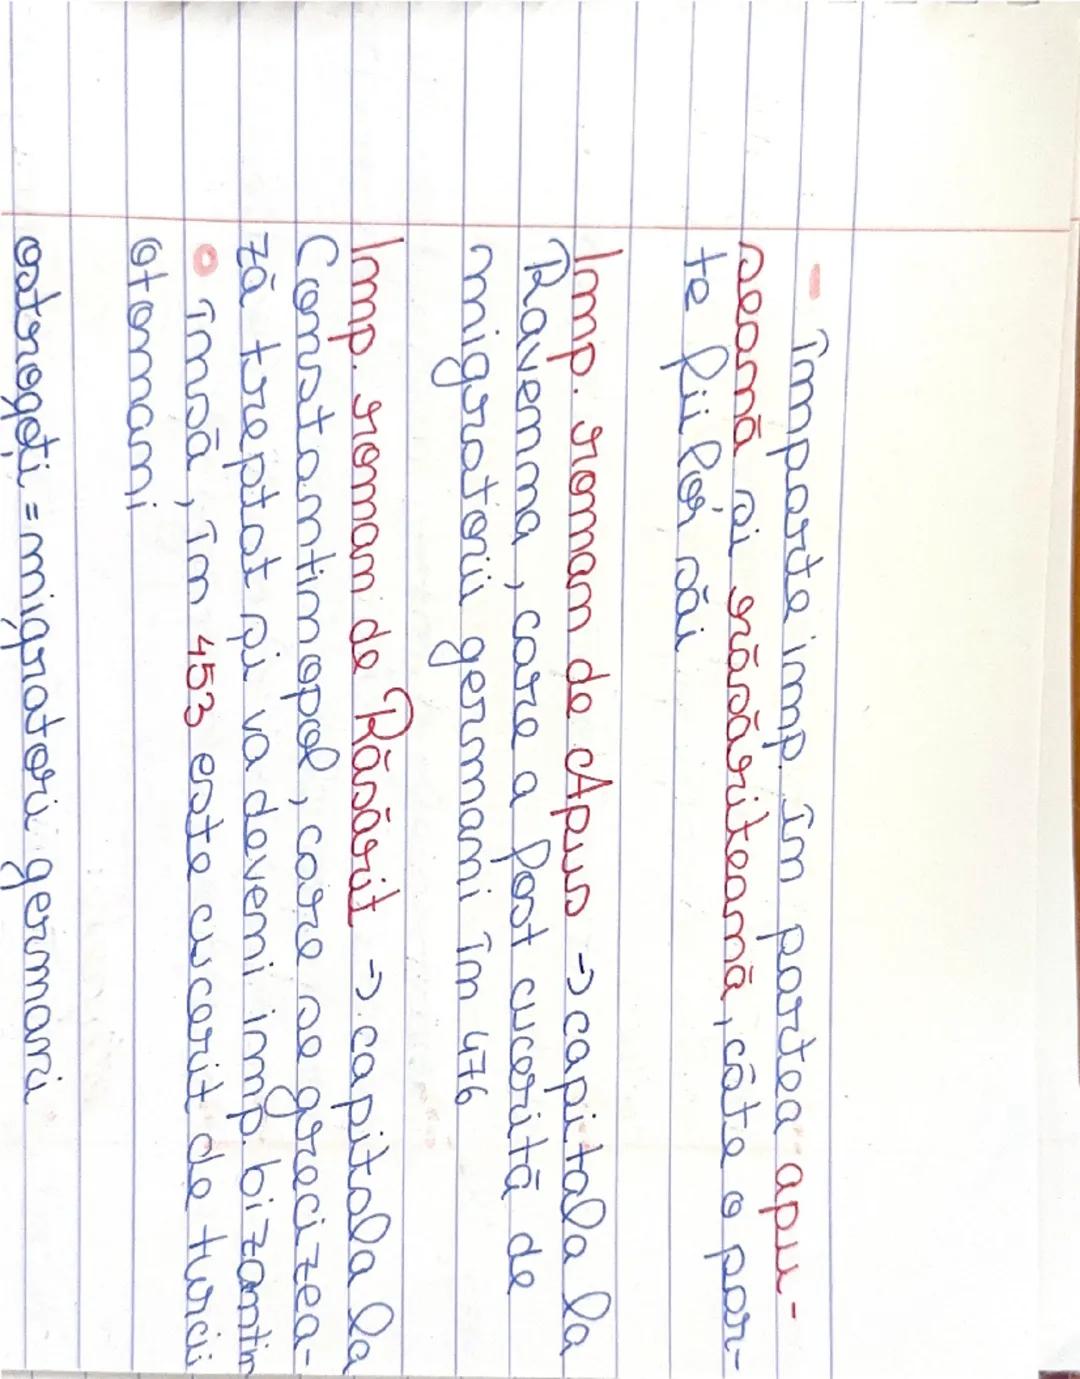 - Împarte imp. în partea apu-
seană și răsăriteană, câte o par-
te fiilor săi
Imp. roman de Apus -> capitala la
Ravenna, care a fost cucerită de
migratorii germani în 476
Imp. roman de Răsărit -> capitala la
Constantinopol, care se grecizea-
ză treptat și va deveni imp. bizantin
• Însă, în 453 este cucerit de turcii
otomani
ostrogoți = migratori germani